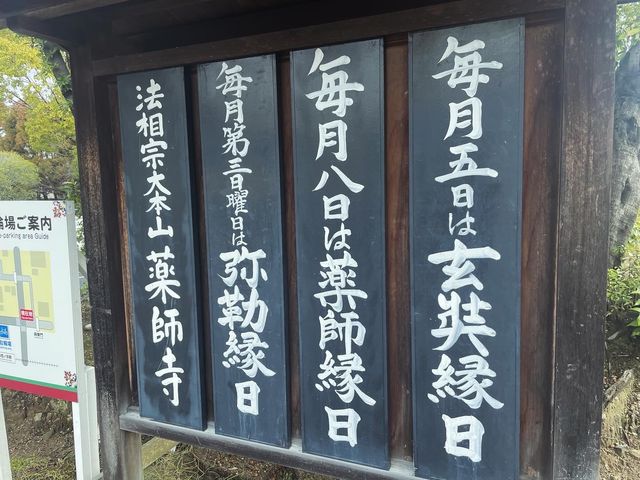 毎月五日は玄奘縁日
毎月八日は薬師縁日
毎月第三日曜日は弥勒縁日
法相宗大本山薬師寺
輪場ご案内
e-parking area Guide